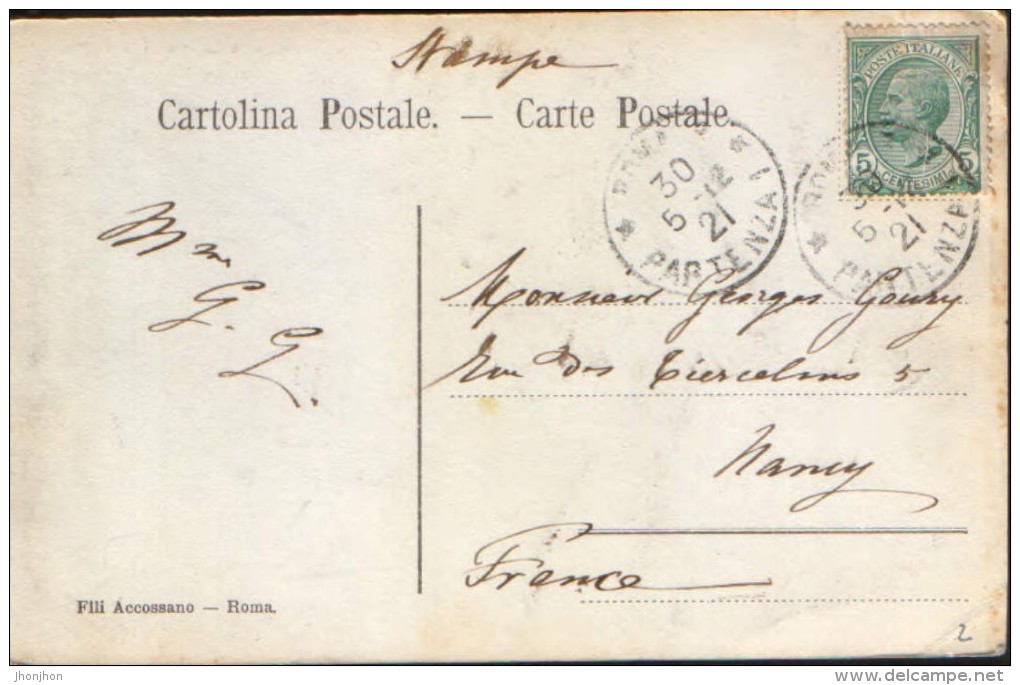 Stampe
Cartolina Postale. — Carte Postale.
POSTE ITALIANE
5 CENTESIMI 5
ROMA
30
5-12
21
PARTENZA
5
21
PARTENZA
Mme
G. G.
Monsieur Georges Goury
Rue des Tiercelins 5
Nancy
France
Flli Accossano — Roma.
2
jhonjhon
www.delcampe.net